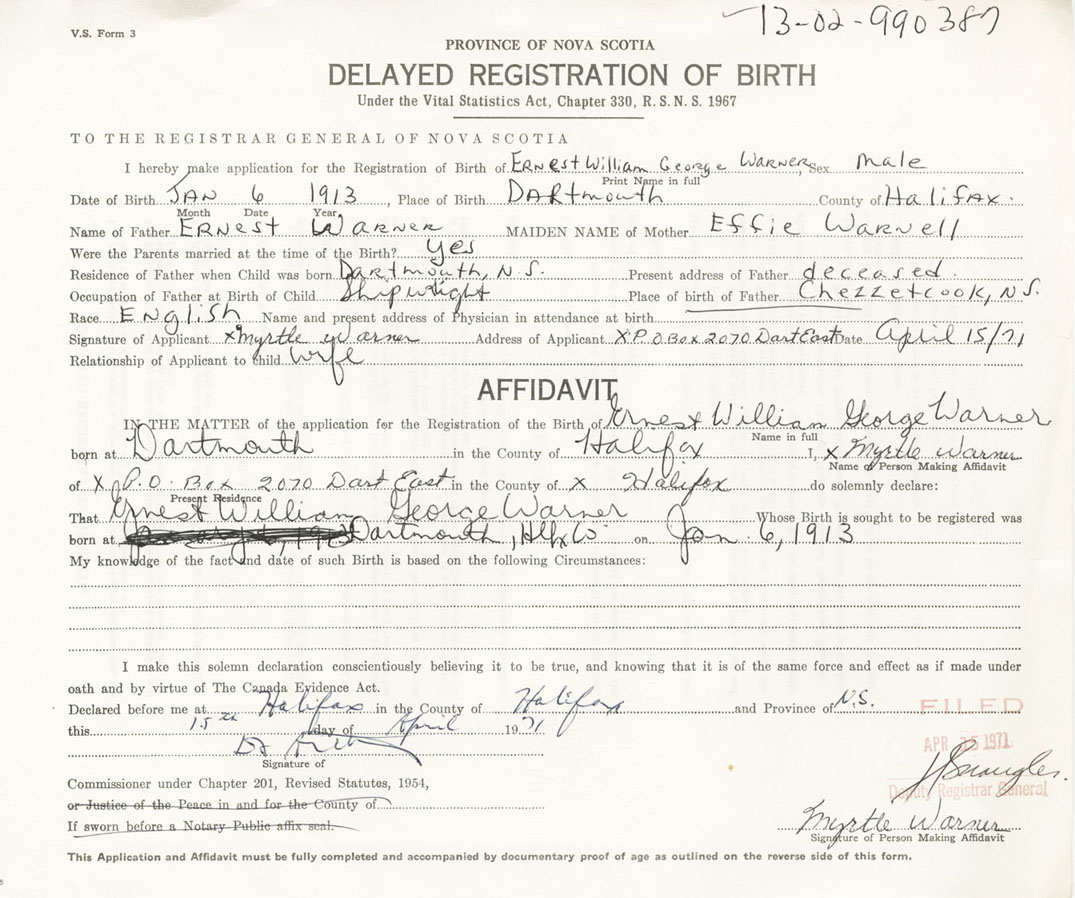 13-02-990387
V.S. Form 3
PROVINCE OF NOVA SCOTIA
DELAYED REGISTRATION OF BIRTH
Under the Vital Statistics Act, Chapter 330, R.S.N.S. 1967
TO THE REGISTRAR GENERAL OF NOVA SCOTIA
I hereby make application for the Registration of Birth of Ernest William George Warner, Sex Male
Print Name in full
Date of Birth Jan 6 1913, Place of Birth Dartmouth County of Halifax.
Month Date Year
Name of Father Ernest Warner MAIDEN NAME of Mother Effie Warnell
Were the Parents married at the time of the Birth? Yes
Residence of Father when Child was born Dartmouth, N.S. Present address of Father deceased.
Occupation of Father at Birth of Child Shipwright Place of birth of Father Chezzetcook, N.S.
Race English Name and present address of Physician in attendance at birth
Signature of Applicant x Myrtle Warner Address of Applicant X P.O Box 2070 Dart East Date April 15/71
Relationship of Applicant to child Wife
AFFIDAVIT
IN THE MATTER of the application for the Registration of the Birth of Ernest William George Warner
Name in full
born at Dartmouth in the County of Halifax I, x Myrtle Warner
Name of Person Making Affidavit
of X P.O. Box 2070 Dart East in the County of x Halifax do solemnly declare:
Present Residence
That Ernest William George Warner Whose Birth is sought to be registered was
born at Dartmouth, Hfx Co on Jan 6, 1913
My knowledge of the fact and date of such Birth is based on the following Circumstances:
I make this solemn declaration conscientiously believing it to be true, and knowing that it is of the same force and effect as if made under
oath and by virtue of The Canada Evidence Act.
Declared before me at Halifax in the County of Halifax and Province of N.S.
this 15th day of April 1971
FILED
APR 15 1971
Signature of
Commissioner under Chapter 201, Revised Statutes, 1954,
Deputy Registrar General
or Justice of the Peace in and for the County of
If sworn before a Notary Public affix seal.
Myrtle Warner
Signature of Person Making Affidavit
This Application and Affidavit must be fully completed and accompanied by documentary proof of age as outlined on the reverse side of this form.